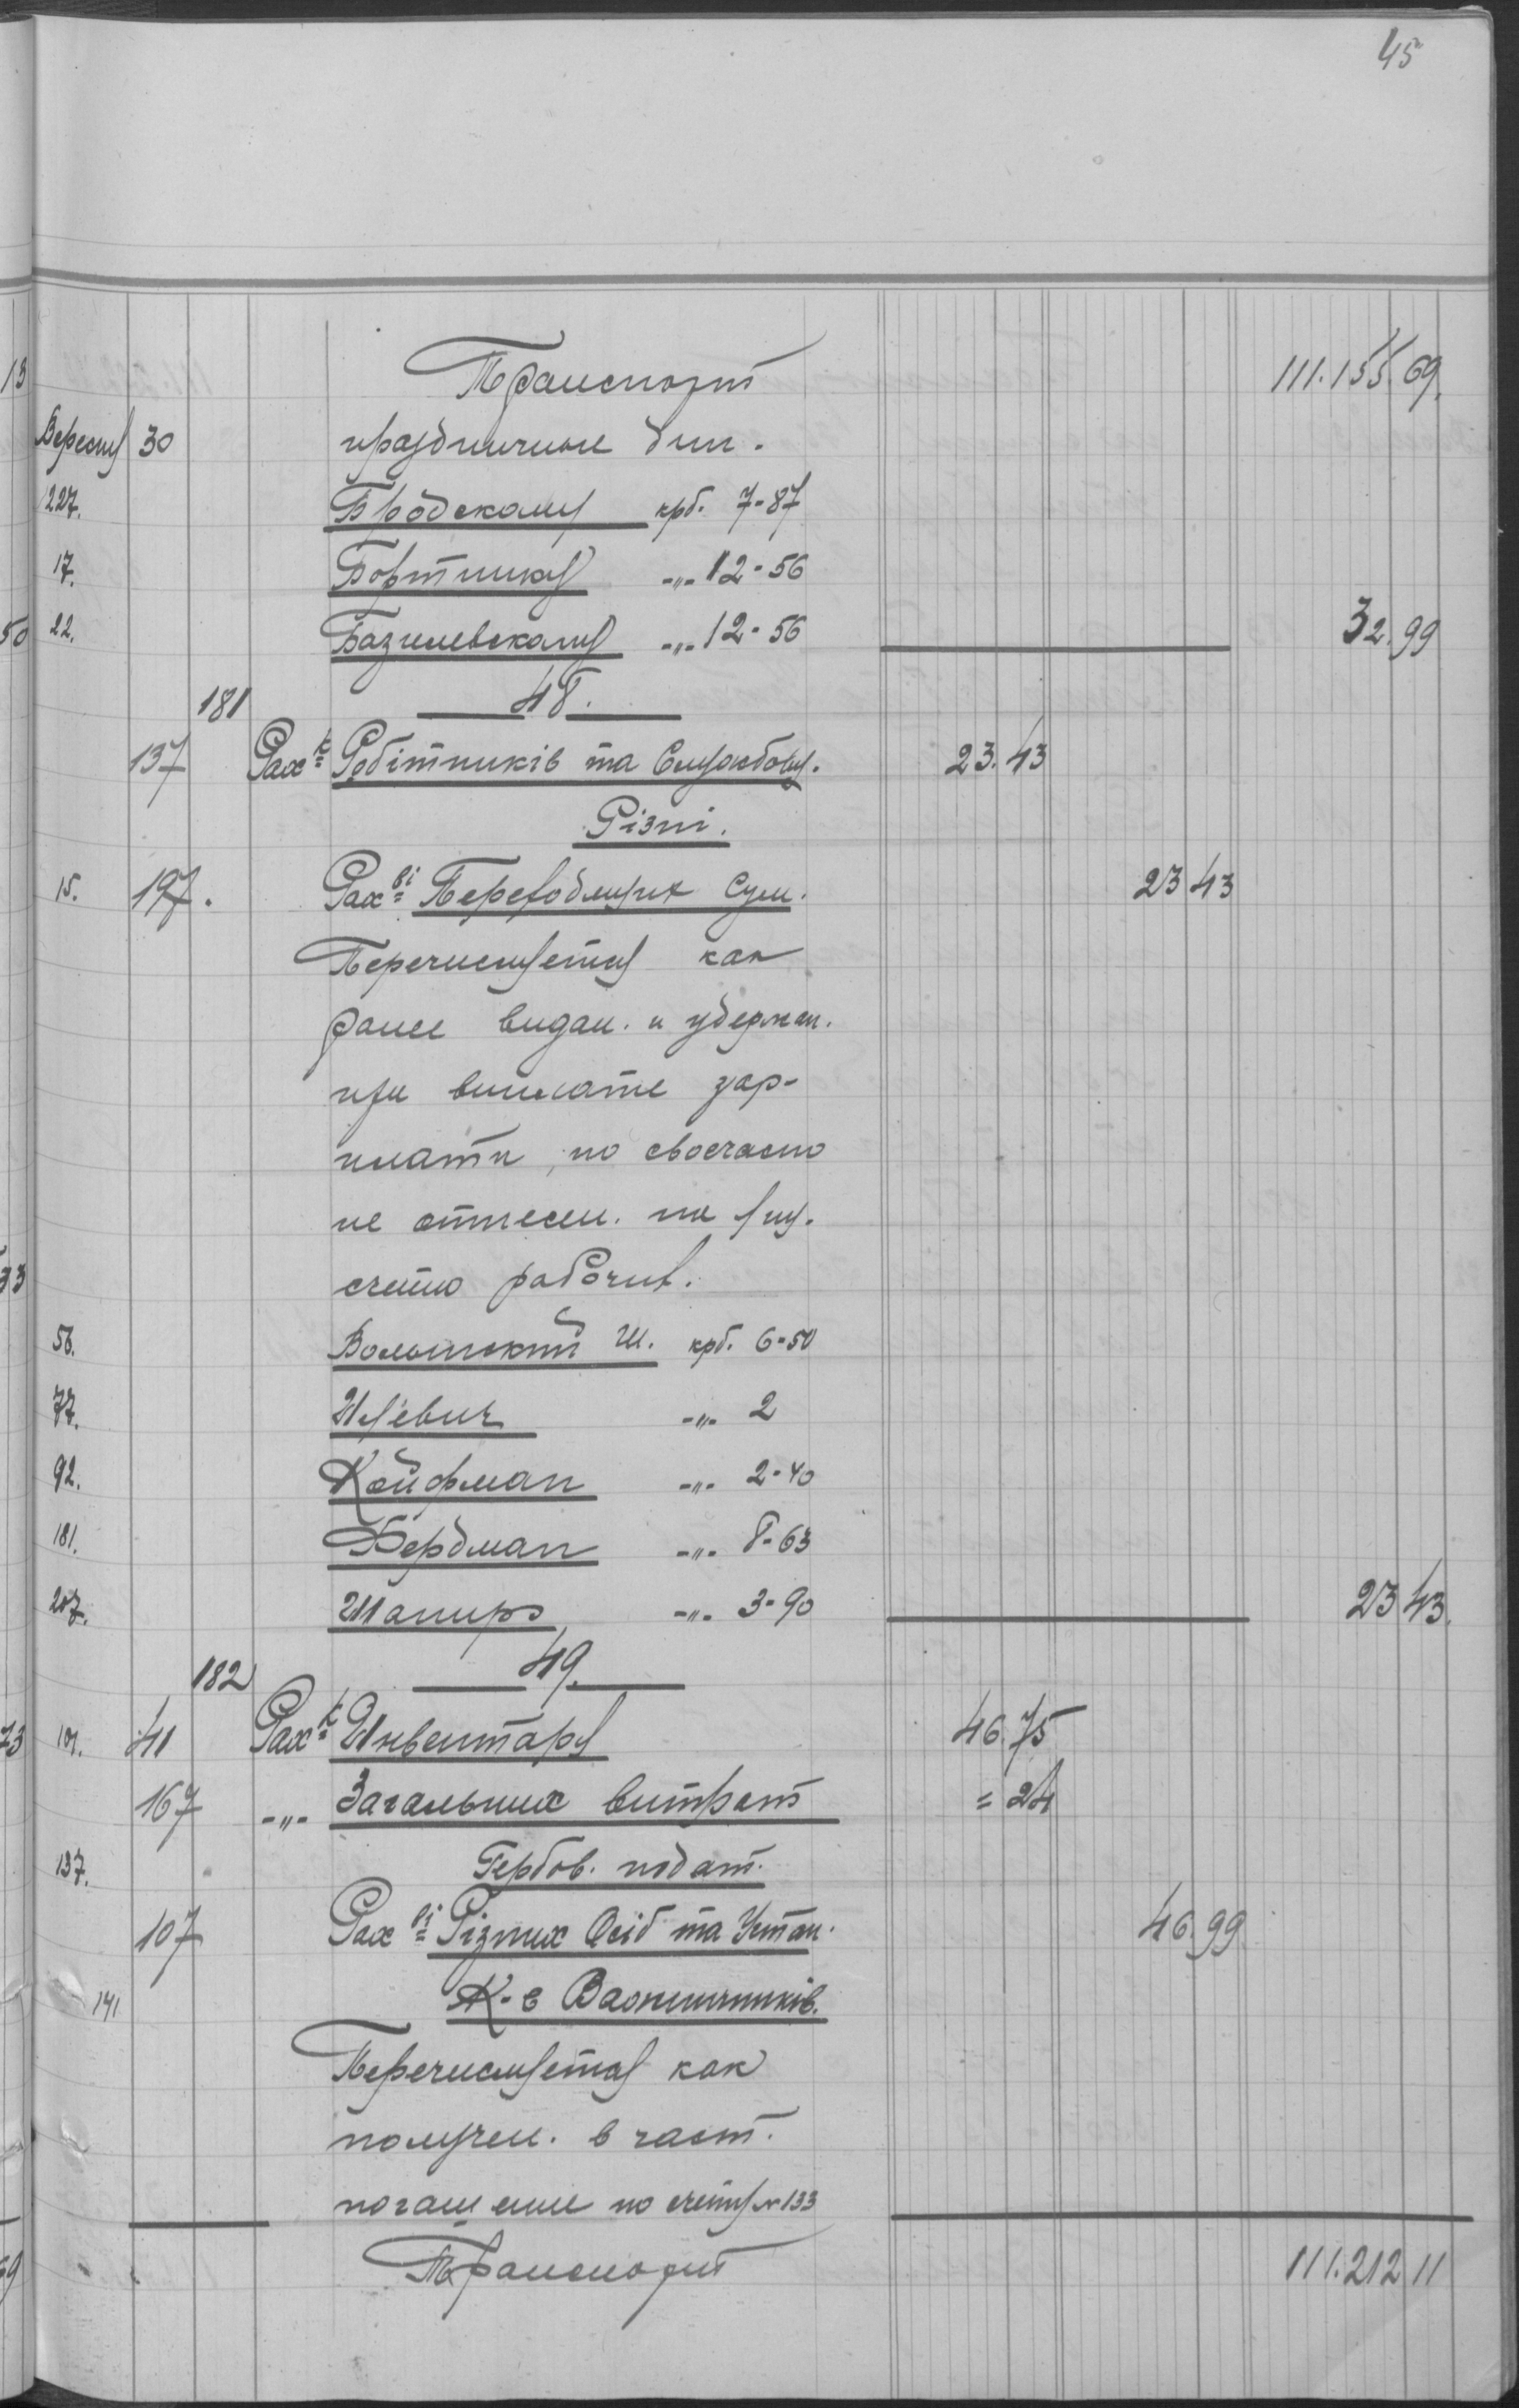 45
Транспорт 111.155.69.
Вересня 30 праздничные дни.
227. Бродскому крб. 7-87
17. Бортнику -"- 12-56
22. Базилевскому -"- 12-56 32.99
181 48.
137 Рах-к Робітників та Службовц. 23.43
Різні.
15. 197. Рах-ві Переходящих Сум. 23 43
Перечисляется как
ранее видан. и удержан.
при выплате зар-
плати, но своечасно
не отнесен. на
счета рабочих.
56. Волынский Ш. крб. 6-50
77. -"- 2
92. Койфман -"- 2-40
181. Фердман -"- 8-63
207. Шапиро -"- 3-90 23 43.
182 49.
101. 41 Рах-к Инвентаря 46.75
167 -"- Загальних витрат = 24
137. Гербов. подат.
107 Рах-ві Різних Осіб та Устан. 46.99
141 К-в
Перечисляется как
получен. в част.
погашение по счету № 133
Транспорт 111.212 11
13
50
33
73
69